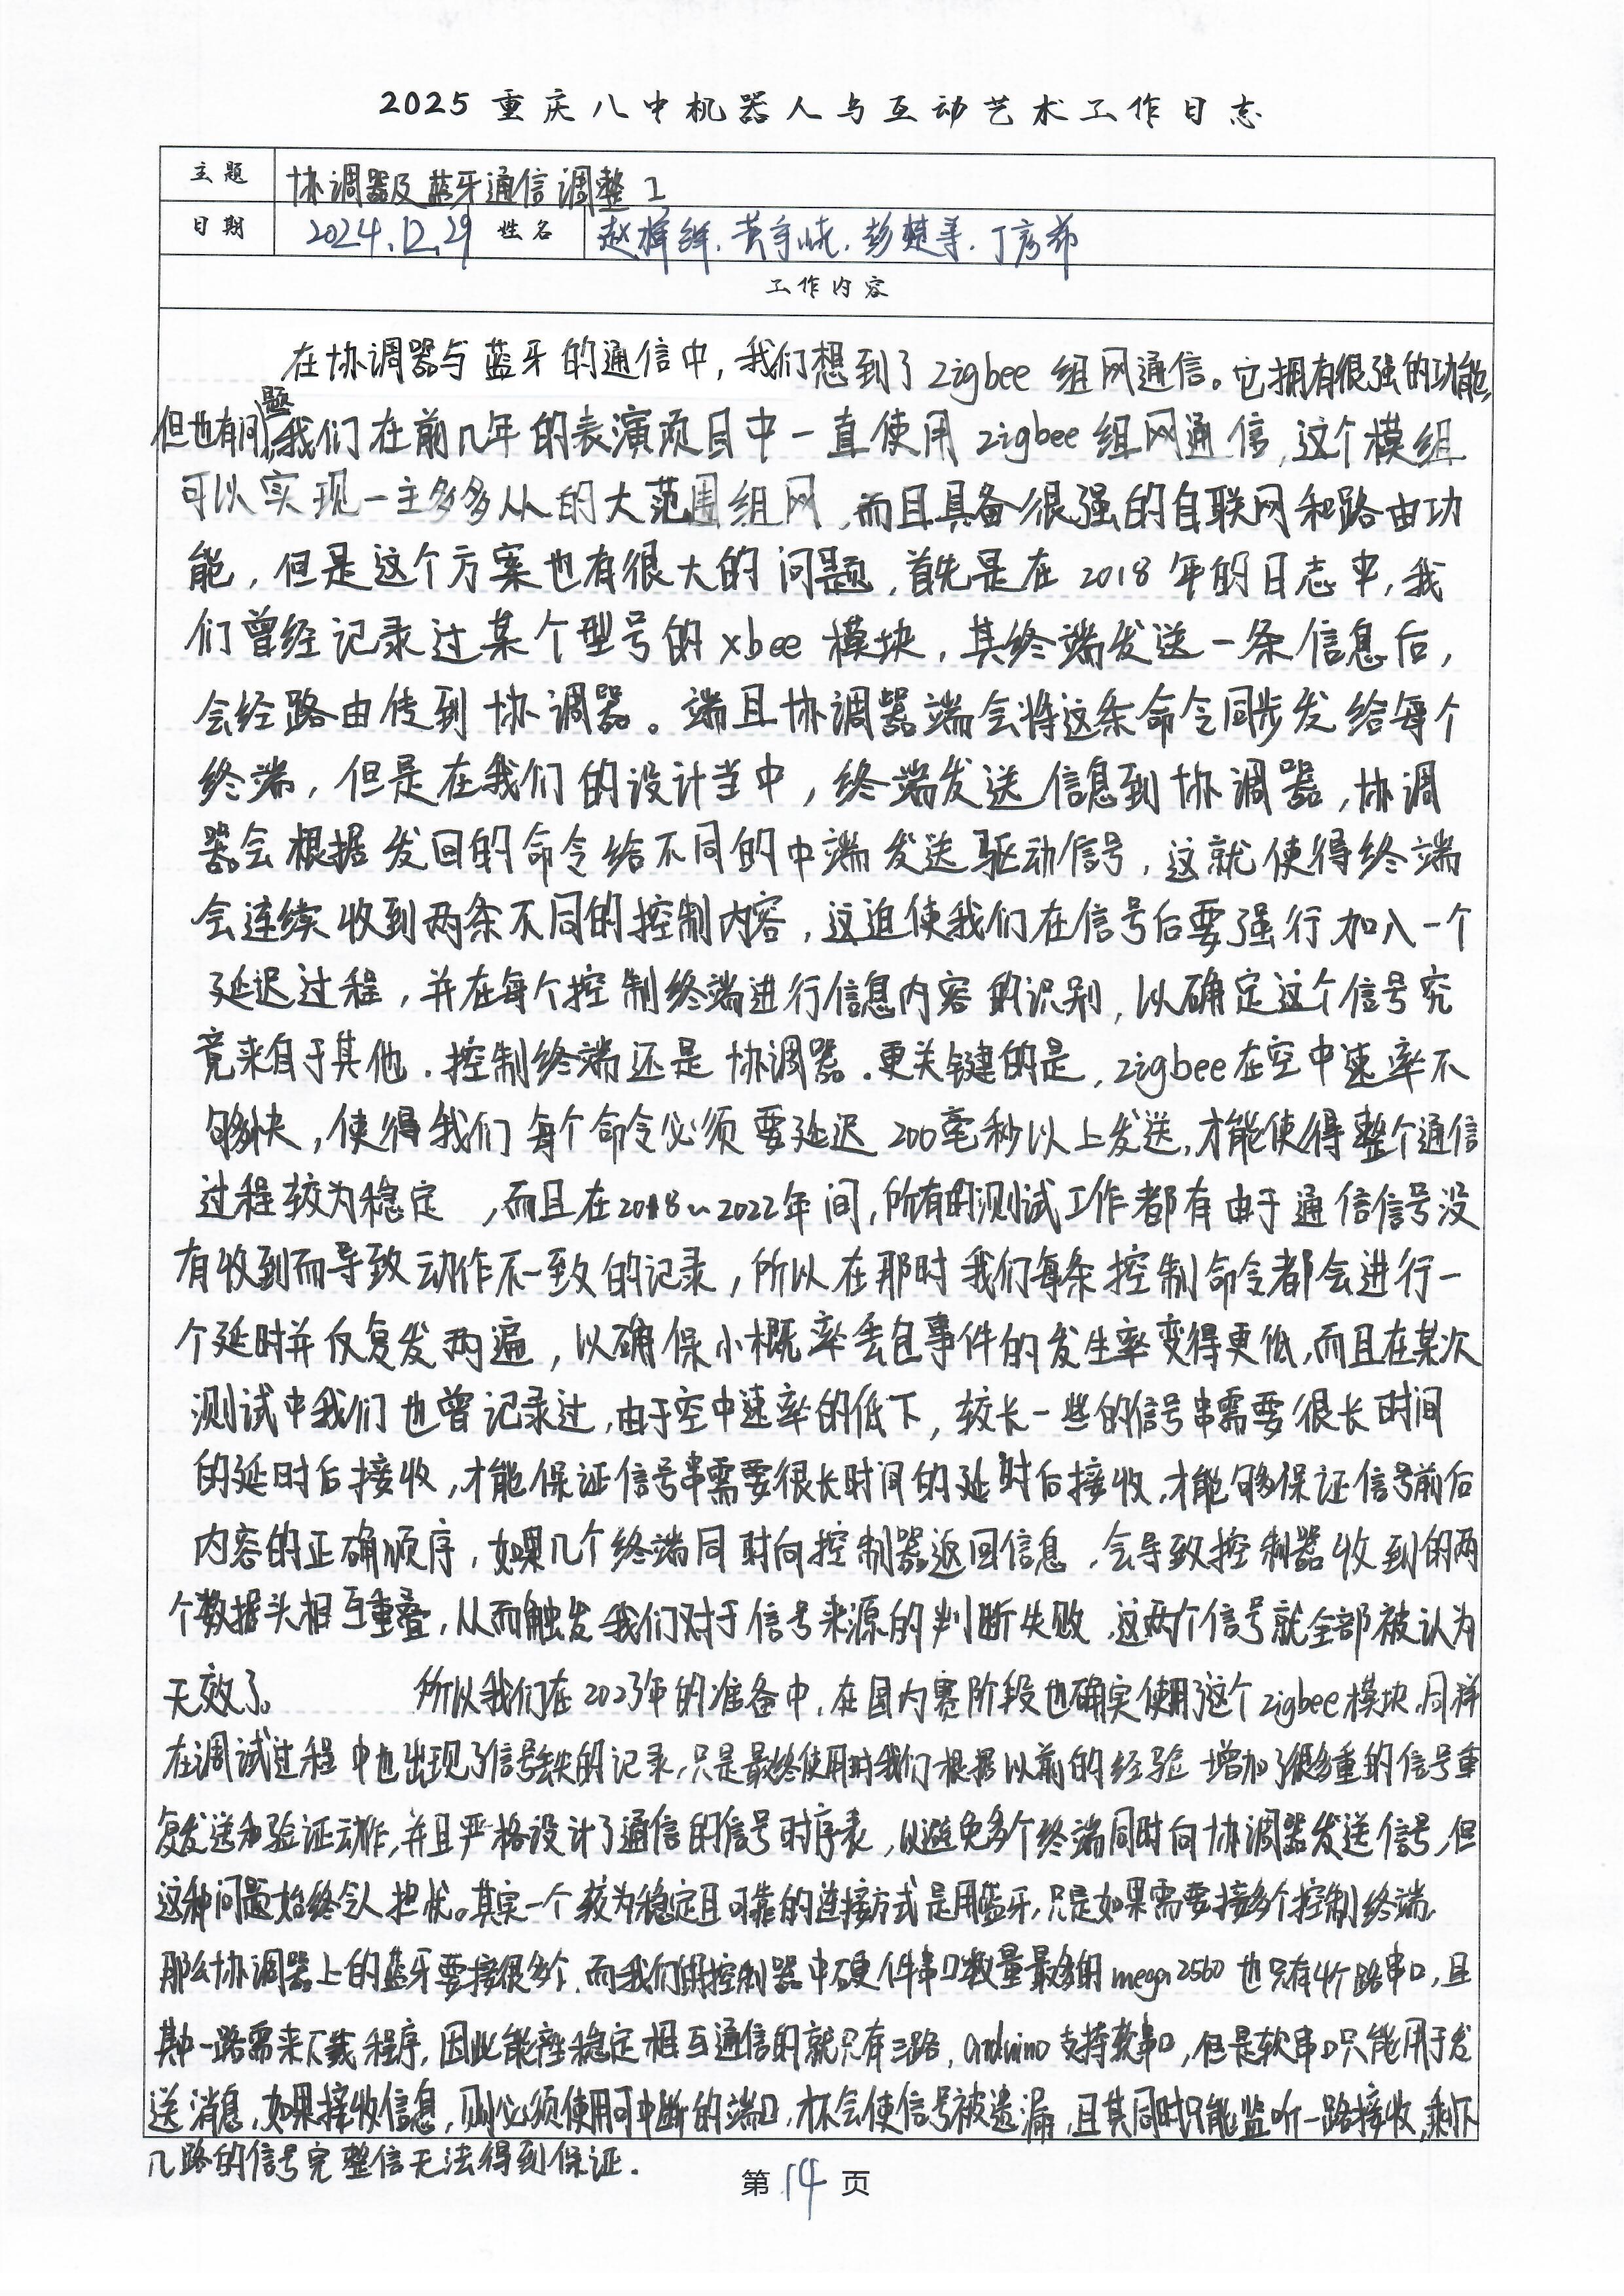 2025重庆八中机器人与互动艺术工作日志
主题 协调器及蓝牙通信调整 1
日期 2024.12.29 姓名 赵 . 黄 . 彭楚 . 丁彦希
工作内容
在协调器与蓝牙的通信中,我们想到了Zigbee 组网通信。它拥有很强的功能,
但也有问题,我们在前几年的表演项目中一直使用zigbee组网通信,这个模组
可以实现一主多多从的大范围组网,而且具备很强的自联网和路由功
能,但是这个方案也有很大的问题,首先是在2018年的日志中,我
们曾经记录过某个型号的xbee模块,其终端发送一条信息后,
会经路由传到协调器。端且协调器端会将这条命令同步发给每个
终端,但是在我们的设计当中,终端发送信息到协调器,协调
器会根据发回的命令给不同的中端发送驱动信号,这就使得终端
会连续收到两条不同的控制内容,这迫使我们在信号后要强行加入一个
延迟过程,并在每个控制终端进行信息内容的识别,以确定这个信号究
竟来自于其他.控制终端还是协调器.更关键的是,zigbee在空中速率不
够快,使得我们每个命令必须要延迟200毫秒以上发送,才能使得整个通信
过程较为稳定,而且在2018~2022年间,所有的测试工作都有由于通信信号没
有收到而导致动作不一致的记录,所以在那时我们每条控制命令都会进行一
个延时并反复发两遍,以确保小概率丢包事件的发生率变得更低,而且在某次
测试中我们也曾记录过,由于空中速率的低下,较长一些的信号串需要很长时间
的延时后接收,才能保证信号串需要很长时间的延时后接收,才能够保证信号前后
内容的正确顺序,如果几个终端同时向控制器返回信息,会导致控制器收到的两
个数据头相互重叠,从而触发我们对于信号来源的判断失败,这两个信号就全部被认为
无效了。 所以我们在2023年的准备中,在国内赛阶段也确实使用了这个zigbee模块,同样
在调试过程中也出现了信号丢失的记录,只是最终使用时我们根据以前的经验增加了很多重的信号重
复发送和验证动作,并且严格设计了通信的信号时序表,以避免多个终端同时向协调器发送信号,但
这种问题始终令人担忧。其实一个较为稳定且可靠的连接方式是用蓝牙,只是如果需要接多个控制终端,
那么协调器上的蓝牙要接很多个,而我们用的控制器中硬件串口数量最多的mega2560也只有4个路串口,且
其中一路需来下载程序,因此能够稳定相互通信的就只有三路,arduino支持软串口,但是软串口只能用于发
送消息,如果接收信息,则必须使用可中断的端口,才不会使信号被遗漏,且其同时只能监听一路接收,剩下
几路的信号完整信无法得到保证.
第14页